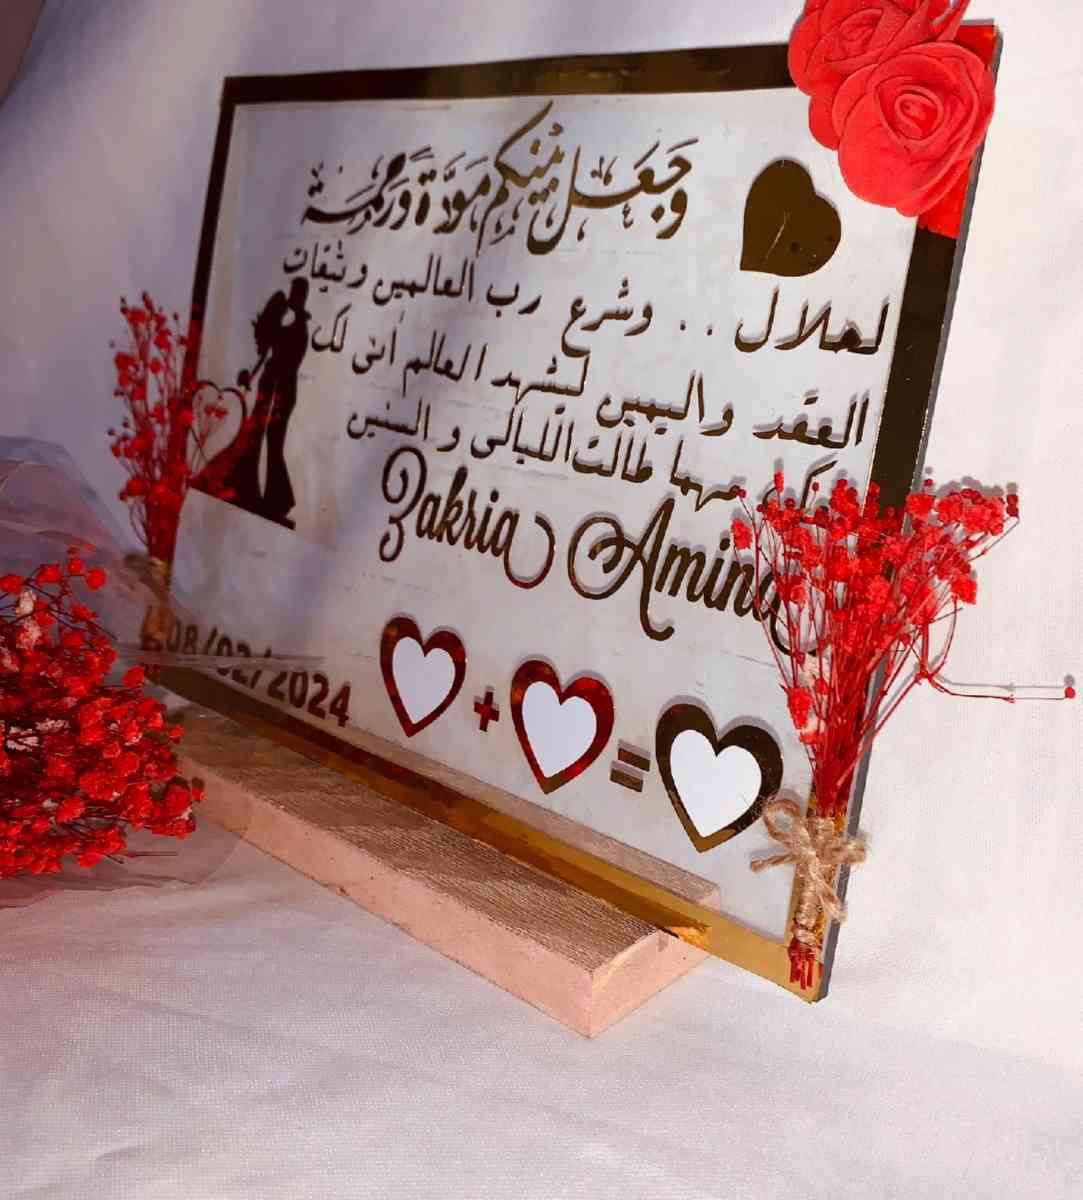 وَجَعَل بَيْنَكُم مَوَدَّةً وَرَحْمَة
لحلال .. وشرع رب العالمين وثيقات
العقد واليمين ليشهد العالم أنني لك
مهما طالت الليالي و السنين
Zakria Amina
08/02/2024
+ =